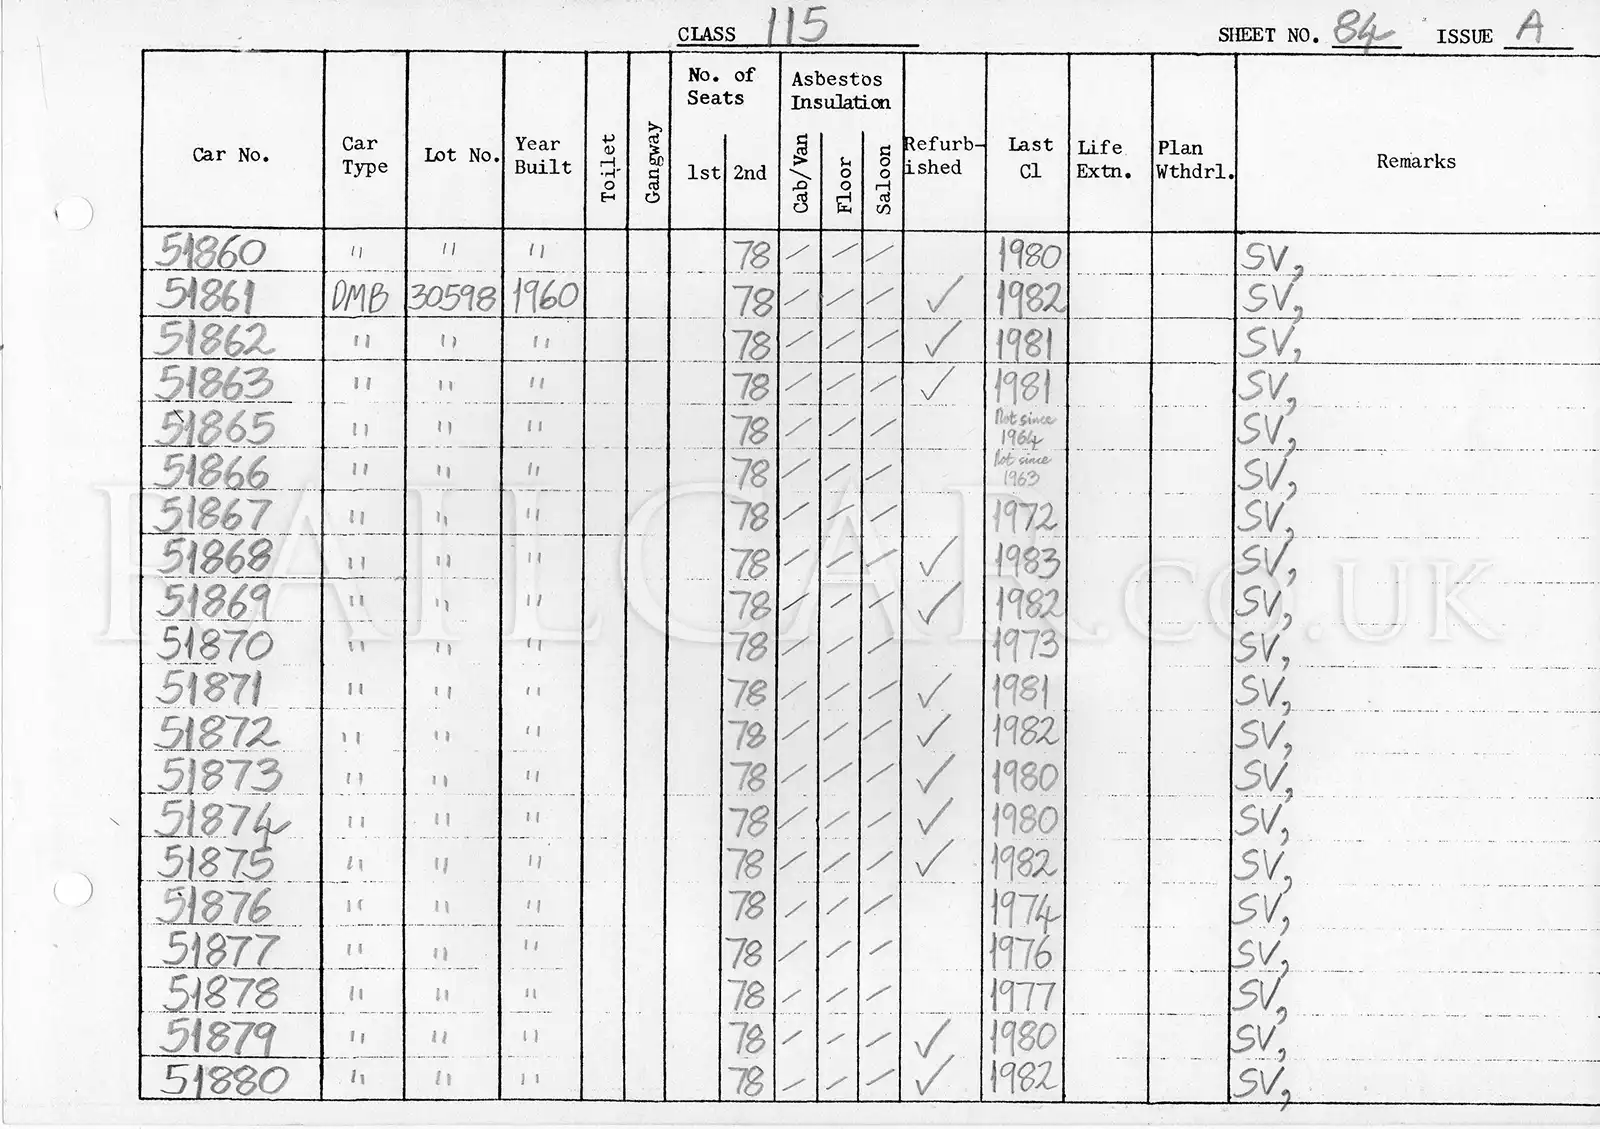 CLASS 115 SHEET NO. 84 ISSUE A
Car No. Car Type Lot No. Year Built Toilet Gangway No. of Seats 1st 2nd Asbestos Insulation Cab/Van Floor Saloon Refurb-ished Last Cl Life Extn. Plan Wthdrl. Remarks
51860 " " " 78 / / / 1980 SV,
51861 DMB 30598 1960 78 / / / ✓ 1982 SV,
51862 " " " 78 / / / ✓ 1981 SV,
51863 " " " 78 / / / ✓ 1981 SV,
51865 " " " 78 / / / Not since 1964 SV,
51866 " " " 78 / / / Not since 1963 SV,
51867 " " " 78 / / / 1972 SV,
51868 " " " 78 / / / ✓ 1983 SV,
51869 " " " 78 / / / ✓ 1982 SV,
51870 " " " 78 / / / 1973 SV,
51871 " " " 78 / / / ✓ 1981 SV,
51872 " " " 78 / / / ✓ 1982 SV,
51873 " " " 78 / / / ✓ 1980 SV,
51874 " " " 78 / / / ✓ 1980 SV,
51875 " " " 78 / / / ✓ 1982 SV,
51876 " " " 78 / / / 1974 SV,
51877 " " " 78 / / / 1976 SV,
51878 " " " 78 / / / 1977 SV,
51879 " " " 78 / / / ✓ 1980 SV,
51880 " " " 78 / / / ✓ 1982 SV,
RAILCAR.CO.UK